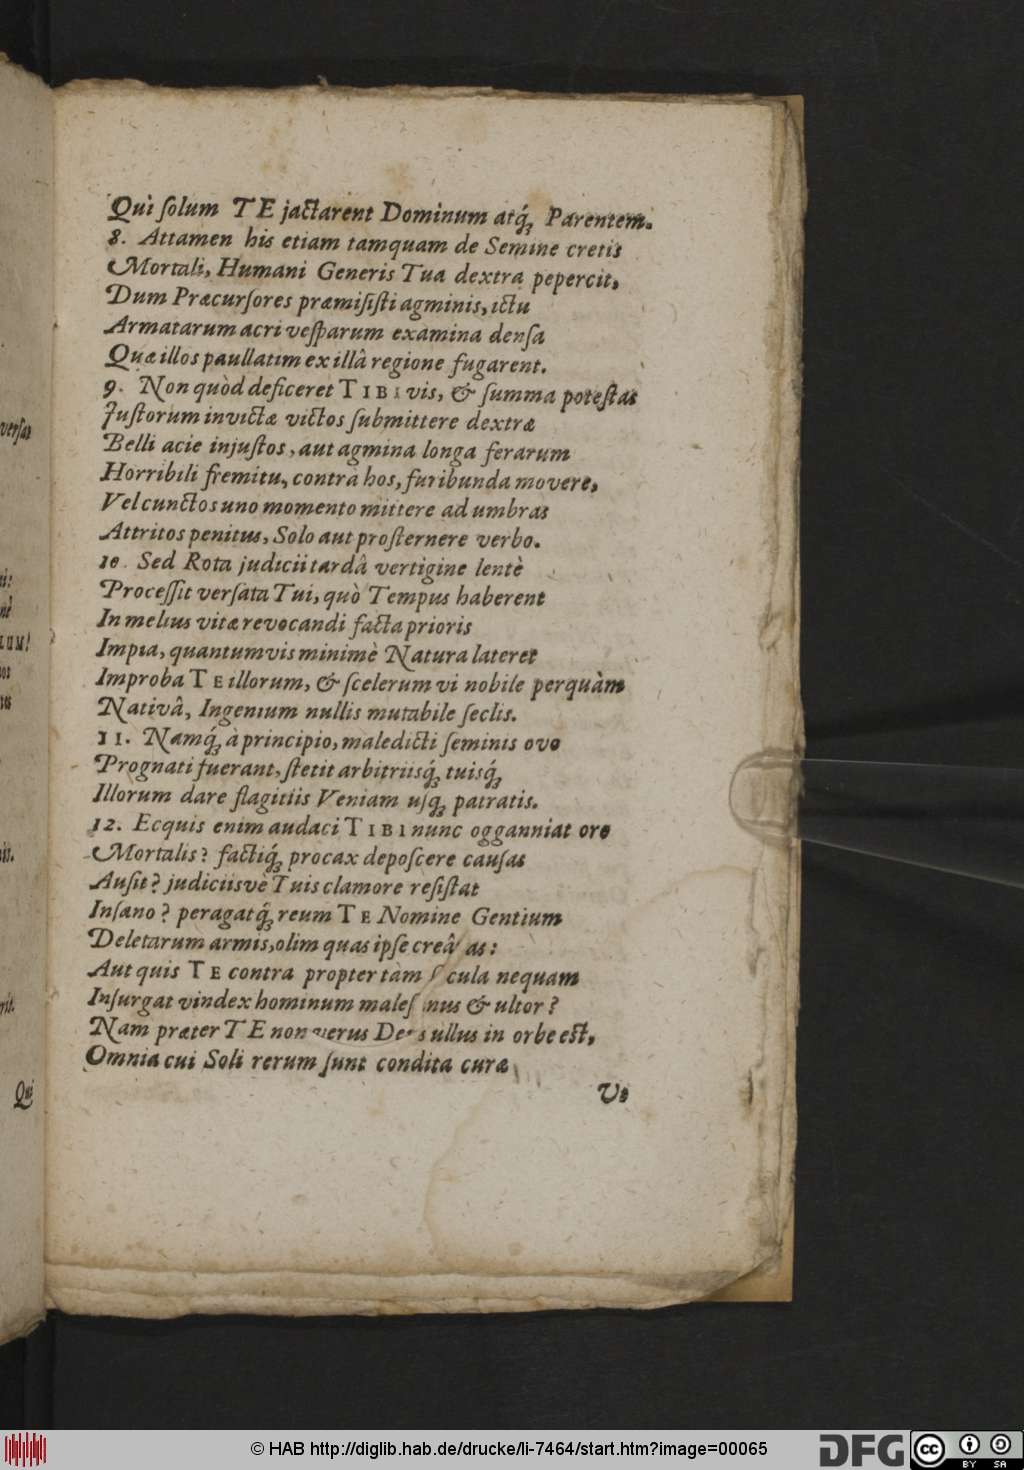 Qui ſolum TE jactarent Dominum atq́; Parentem.
8. Attamen his etiam tamquam de Semine cretis
Mortali, Humani Generis Tua dextra pepercit,
Dum Præcurſores præmiſiſti agminis, ictu
Armatarum acri veſparum examina denſa
Quæ illos paullatim ex illâ regione fugarent.
9. Non quòd deficeret TIBI vis, & ſumma poteſtas
Juſtorum invictæ victos ſubmittere dextræ
Belli acie injuſtos, aut agmina longa ferarum
Horribili fremitu, contrà hos, furibunda movere,
Vel cunctos uno momento mittere ad umbras
Attritos penitus, Solo aut proſternere verbo.
10. Sed Rota judicii tardâ vertigine lentè
Proceſſit verſata Tui, quò Tempus haberent
In melius vitæ revocandi facta prioris
Impia, quantumvis minimè Natura lateret
Improba TE illorum, & ſcelerum vi nobile perquàm
Nativâ, Ingenium nullis mutabile ſeclis.
11. Namq́; à principio, maledicti ſeminis ovo
Prognati fuerant, ſtetit arbitriisq́; tuisq́;
Illorum dare flagitiis Veniam uſq́; patratis.
12. Ecquis enim audaci TIBI nunc ogganniat ore
Mortalis? factiq́; procax depoſcere cauſas
Auſit? judiciisvè Tuis clamore reſiſtat
Inſano? peragatq́; reum TE Nomine Gentium
Deletarum armis, olim quas ipſe creâ as:
Aut quis TE contra propter tàm cula nequam
Inſurgat vindex hominum maleſ nus & ultor?
Nam præter TE non verus Deus ullus in orbe eſt,
Omnia cui Soli rerum ſunt condita curæ
Ve
verſas
Qui
© HAB http://diglib.hab.de/drucke/li-7464/start.htm?image=00065
DFG
cc
BY SA